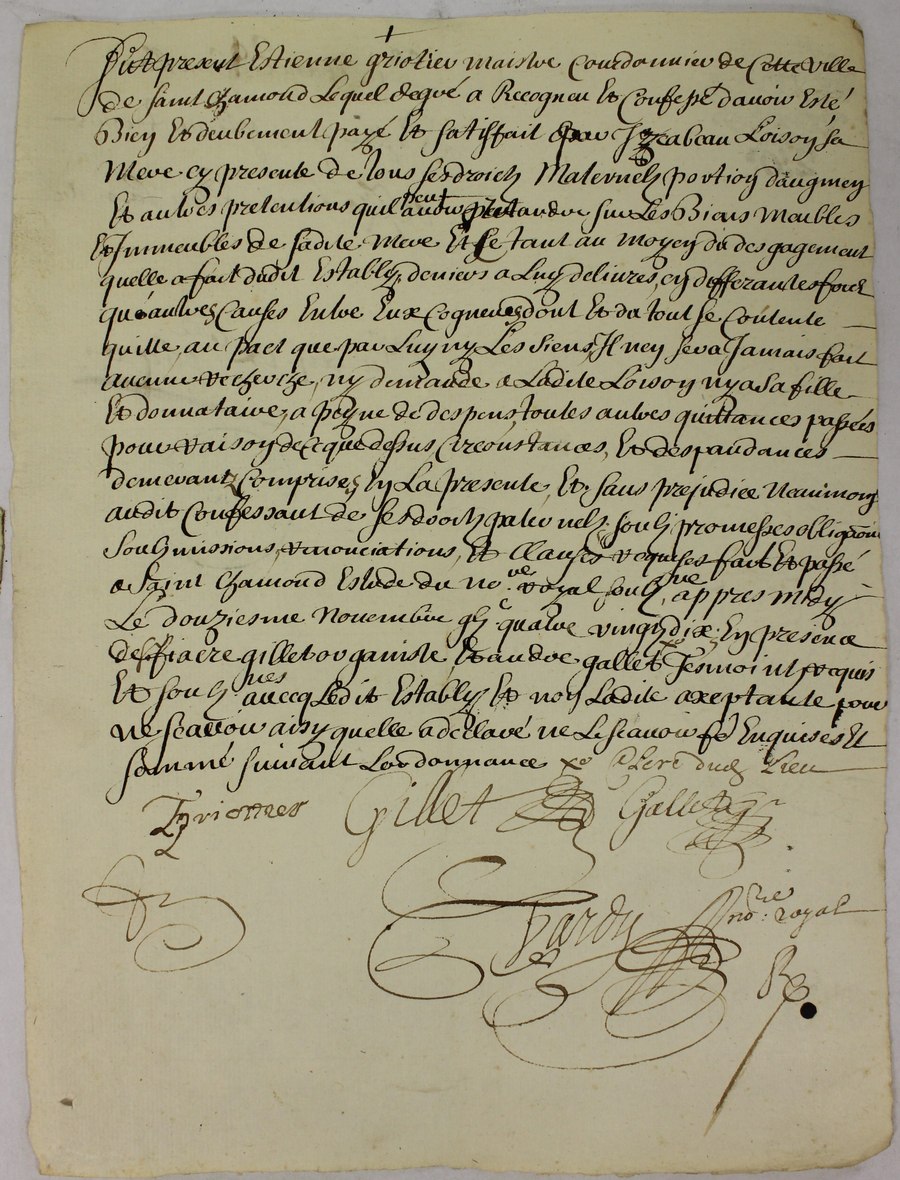 Fust present Estienne griotier maistre Courdonnier de Cette ville
de saint chamond Lequel de gré a Recogneu Et Confessé d'avoir Esté
Bien Et deubement payé Et satisfait par Izabeau Loison sa
Mere cy presente de tous ses droich Maternels portion d'augmen
Et autres pretentions quil peut avoir sur Les Biens Meubles
Et Immeubles de sadite Mere Et Ce tant au moyen du desgagement
quelle a fait dudit Estably, deniers a Luy delivres, en differantes fois
qu'autres Causes Entre Eux Cogneues dont Et du tout se Contente
quitte, au pact que par Luy ny Les siens Il n'en sera Jamais fait
aucune recherche, ny demande a Ladite Loison ny a sa fille
Et donnataire, a peyne de despens, toutes autres quittances passées
pour raison de Ce que dessus Circonstances, Et despandances
demeurant Comprises En La presente, Et sans prejudice Neaumoing
audit Confessant de ses droich paternels, soub promesses obliga͠on
soubmissions, renonciations, Et Clauses requises fait Et passé
a Saint Chamond Estude du no.re royal soub.né, appres midy
Le douziesme Novembre quatre vingt dix En presence
de ffiacre gillet organiste Et andre gallet Tesmoint requis
Et soub.nes avecq Ledit Estably Et non Ladite axeptante pour
ne scavoir ainsy quelle a declaré ne Le scavoir fe Enquises Et
sommé suivant Lordonnance dud Lieu
Gillet Gallet
hardy no.re royal